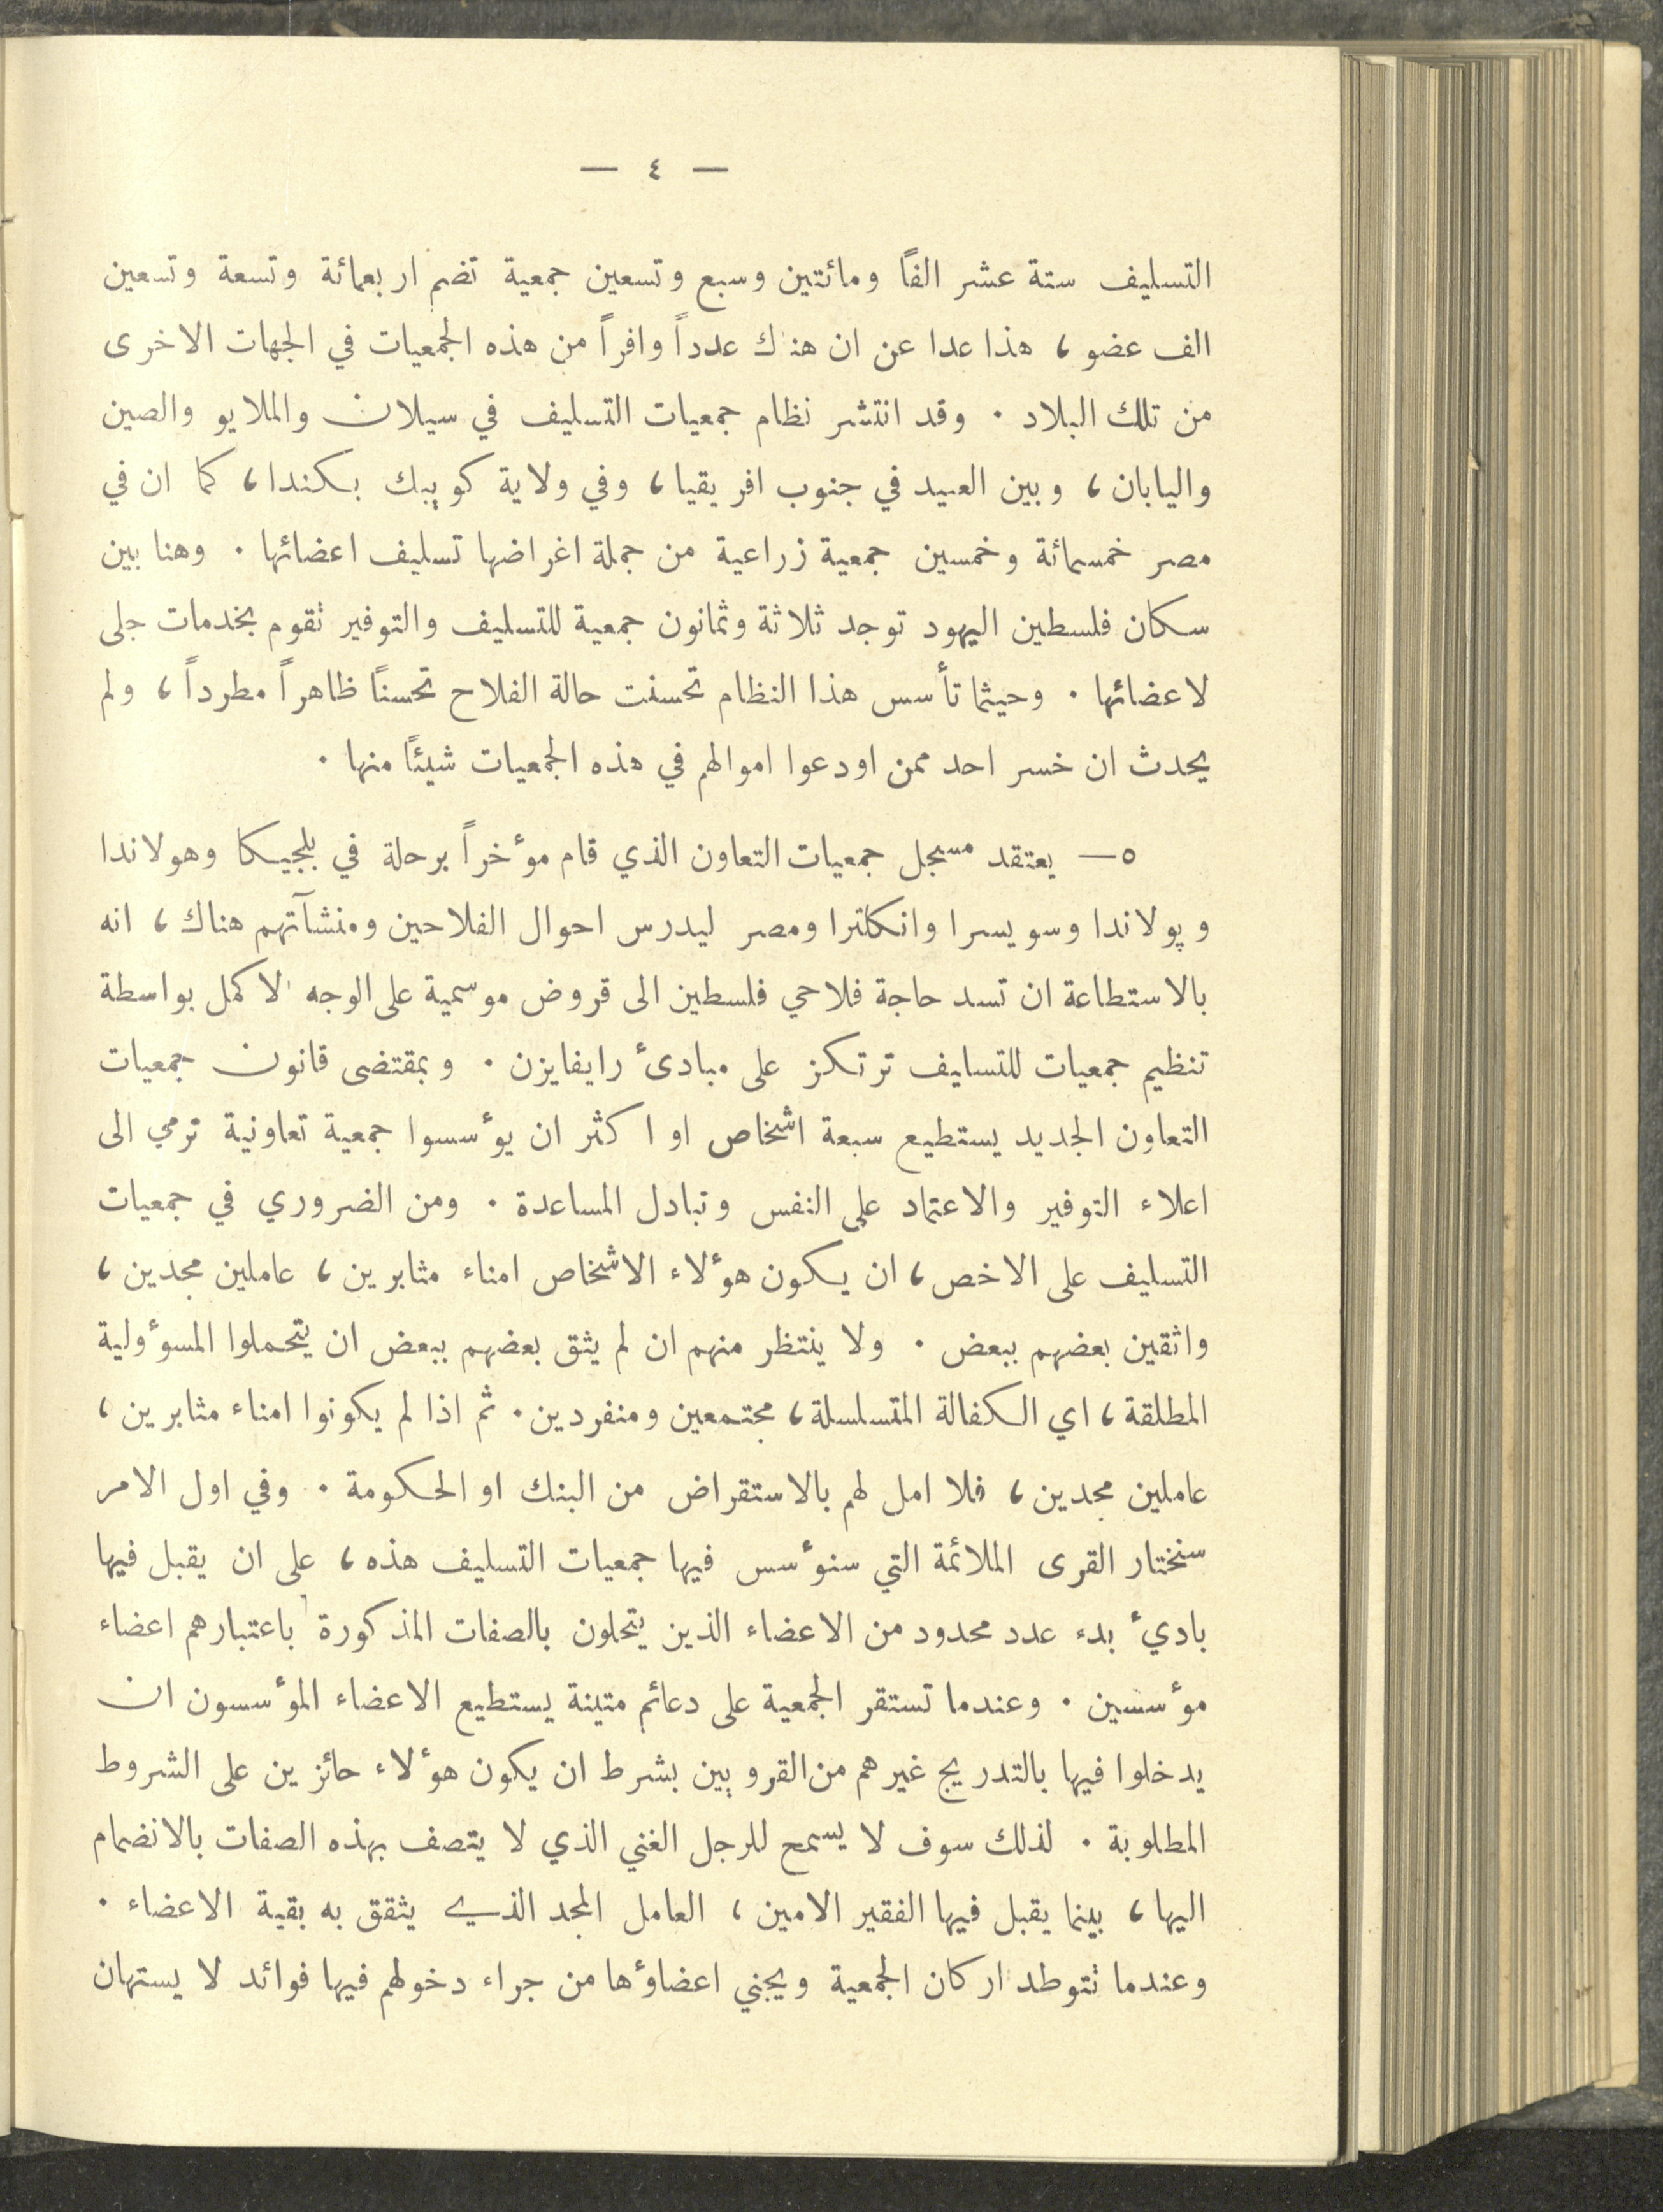 — ٤ —
التسليف ستة عشر الفاً ومائتين وسبع وتسعين جمعية تضم اربعمائة وتسعة وتسعين
الف عضو ، هذا عدا عن ان هناك عدداً وافراً من هذه الجمعيات في الجهات الاخرى
من تلك البلاد . وقد انتشر نظام جمعيات التسليف في سيلان والملايو والصين
واليابان ، وبين العبيد في جنوب افريقيا ، وفي ولاية كويبك بكندا ، كما ان في
مصر خمسمائة وخمسين جمعية زراعية من جملة اغراضها تسليف اعضائها . وهنا بين
سكان فلسطين اليهود توجد ثلاثة وثمانون جمعية للتسليف والتوفير تقوم بخدمات جلى
لاعضائها . وحيثما تأسس هذا النظام تحسنت حالة الفلاح تحسناً ظاهراً مطرداً ، ولم
يحدث ان خسر احد ممن اودعوا اموالهم في هذه الجمعيات شيئاً منها .
٥— يعتقد مسجل جمعيات التعاون الذي قام مؤخراً برحلة في بلجيكا وهولاندا
وپولاندا وسويسرا وانكلترا ومصر ليدرس احوال الفلاحين ومنشآتهم هناك ، انه
بالاستطاعة ان تسد حاجة فلاحي فلسطين الى قروض موسمية على الوجه الاكمل بواسطة
تنظيم جمعيات للتسليف ترتكز على مبادئ رايفايزن . وبمقتضى قانون جمعيات
التعاون الجديد يستطيع سبعة اشخاص او اكثر ان يؤسسوا جمعية تعاونية ترمي الى
اعلاء التوفير والاعتماد على النفس وتبادل المساعدة . ومن الضروري في جمعيات
التسليف على الاخص ، ان يكون هؤلاء الاشخاص امناء مثابرين ، عاملين مجدين ،
واثقين بعضهم ببعض . ولا ينتظر منهم ان لم يثق بعضهم ببعض ان يتحملوا المسؤولية
المطلقة ، اي الكفالة المتسلسلة ، مجتمعين ومنفردين . ثم اذا لم يكونوا امناء مثابرين ،
عاملين مجدين ، فلا امل لهم بالاستقراض من البنك او الحكومة . وفي اول الامر
سنختار القرى الملائمة التي سنؤسس فيها جمعيات التسليف هذه ، على ان يقبل فيها
باديء بدء عدد محدود من الاعضاء الذين يتحلون بالصفات المذكورة باعتبارهم اعضاء
مؤسسين . وعندما تستقر الجمعية على دعائم متينة يستطيع الاعضاء المؤسسون ان
يدخلوا فيها بالتدريج غيرهم من القرويين بشرط ان يكون هؤلاء حائزين على الشروط
المطلوبة . لذلك سوف لا يسمح للرجل الغني الذي لا يتصف بهذه الصفات بالانضمام
اليها ، بينما يقبل فيها الفقير الامين ، العامل المجد الذي يثقق به بقية الاعضاء .
وعندما تتوطد اركان الجمعية ويجني اعضاؤها من جراء دخولهم فيها فوائد لا يستهان